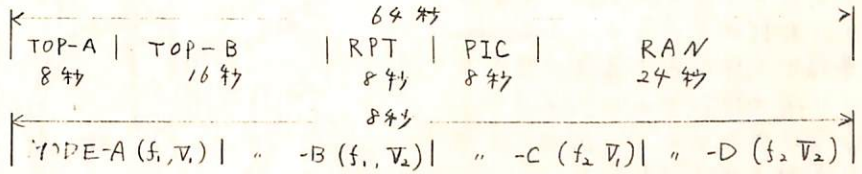 64秒
TOP-A | TOP-B | RPT | PIC | RAN
8秒 16秒 8秒 8秒 24秒
8秒
MODE-A (f₁, V̅₁) | 〃 -B (f₁, V̅₂) | 〃 -C (f₂ V̅₁) | 〃 -D (f₂ V̅₂)